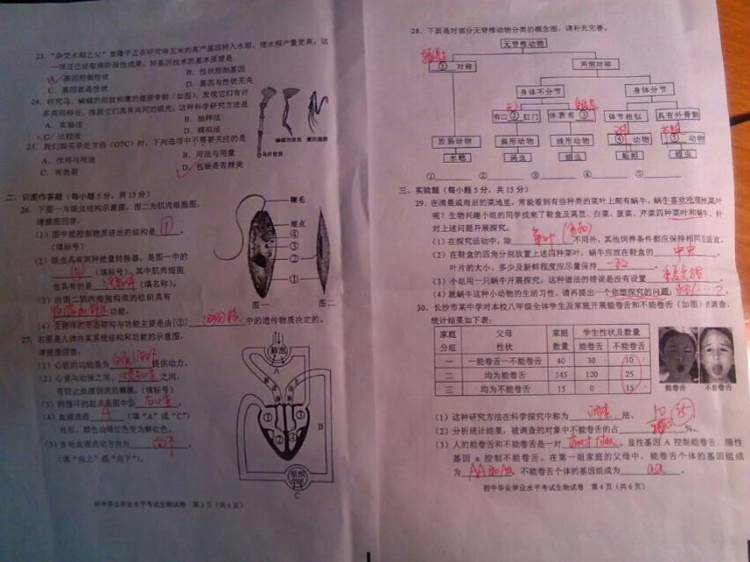 23. "杂交水稻之父"袁隆平正在研究将玉米的高产基因转入水稻，使水稻产量更高。这
一项目已经有阶段性成果。转基因技术的基本原理是
A. 基因控制性状 B. 性状控制基因
C. 基因就是性状 D. 基因与性状无关
24. 研究马、蝙蝠的前肢和鹰的翅膀骨骼（如图），发现它们有许
多共同特征，推测它们具有共同的祖先。这种科学研究方法是
A. 实验法 B. 抽样法
C. 比较法 D. 模拟法
25. 我们购买非处方药（OTC）时，下列选项中不需要关注的是
A. 作用与用途 B. 用法与用量
C. 有效期 D. 包装是否精美
二、识图作答题（每小题 5 分，共 15 分）
26. 下图一为眼虫结构示意图，图二为肌肉细胞图。
请据图回答。
(1) 图中能控制物质进出的结构是
（填标号）
(2) 眼虫具有两种能量转换器，是图一中的
（填标号），其中肌肉细胞
也具有的是 （填名称）。
(3) 由图二肌肉细胞构成的组织具有
功能。
中的遗传物质决定的。
鞭毛
眼点
④
③
②
①
图一 图二
27. 右图是人体内某系统结构和功能的示意图。
请据图回答。
(1) 心脏的功能是为 提供动力。
(2) 心房与心室之间、 之间，
有防止血液倒流的瓣膜。（填标号）
(3) 肺循环的起点是图中的
(4) 血液流经 A （填"A"或"C"）
处后，颜色由暗红色变为鲜红色。
（填"向上"或"向下"）。
A
B
C
初中毕业学业水平考试生物试卷 第 3 页（共 6 页）
28. 下面是对部分无脊椎动物分类的概念图，请补充完善。
无脊椎动物
① 对称 两侧对称
身体不分节 身体分节
有口 ② 肛门 体表有 ③ 体节相似 具有外骨骼
腔肠动物 扁形动物 线形动物 ④ 动物 ⑤ 动物
水螅 涡虫 蛔虫 蚯蚓 蝗虫
① ② ③ ④ ⑤
三、实验题（每小题 5 分，共 15 分）
29. 在清晨或雨后的菜地里，常能看到有些种类的菜叶上爬有蜗牛，蜗牛喜欢吃
呢？生物兴趣小组的同学找来了鞋盒及莴苣、白菜、菠菜、芹菜四种菜叶和蜗牛，针
对上述问题开展探究。
(1) 在探究活动中，除 不同外，其他饲养条件都应保持相同且适宜。
(2) 在鞋盒的四角分别放置上述四种菜叶，蜗牛应放在鞋盒的 中央 ，
叶片的大小、多少及新鲜程度应尽量保持
(3) 小组用一只蜗牛开展探究，这种做法的错误是没有设置
(4) 就蜗牛这种小动物的生活习性，请再提出一个你想探究的问题：
30. 长沙市某中学对本校八年级全体学生及家庭开展能卷舌和不能卷舌（如图）的调查，
统计结果如下表：
家庭 父母 家庭 学生性状及数量
分组 性状 数量 能卷舌 不能卷舌
一 一能卷舌一不能卷舌 40 30 10
二 均为能卷舌 145 120 25
三 均为不能卷舌 15 0 15
能卷舌 不能卷舌
(1) 这种研究方法在科学探究中称为 调查 法。
(2) 分析统计结果，被调查的对象中不能卷舌的占 %。
(3) 人的能卷舌和不能卷舌是一对 ，显性基因 A 控制能卷舌、隐性
基因 a 控制不能卷舌。在第一组家庭的父母中，能卷舌个体的基因组成
为 AA或Aa 不能卷舌个体的基因组成为 aa 。
初中毕业学业水平考试生物试卷 第 4 页（共 6 页）